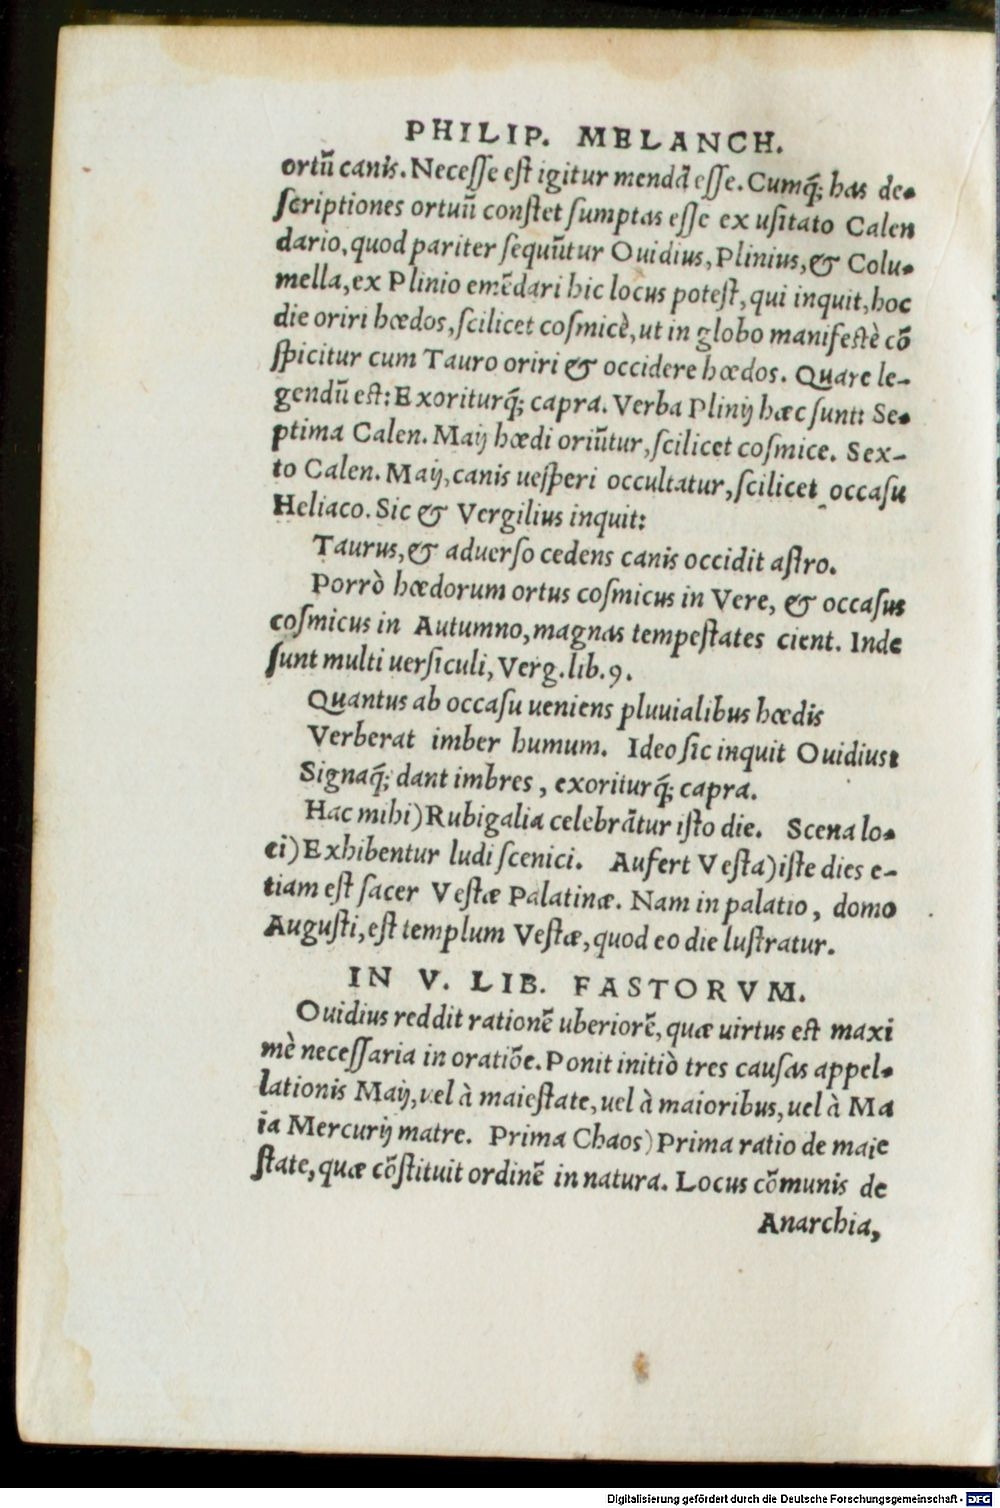 PHILIP. MELANCH.
ortũ canis. Necesse est igitur mendã esse. Cumq̃; has de-
scriptiones ortuũ constet sumptas esse ex usitato Calen
dario, quod pariter sequũtur Ouidius, Plinius, & Colu-
mella, ex Plinio emẽdari hic locus potest, qui inquit, hoc
die oriri hœdos, scilicet cosmicè, ut in globo manifestè cõ
spicitur cum Tauro oriri & occidere hœdos. Quare le-
gendũ est: Exoriturq̃; capra. Verba Plinij hæc sunt: Se-
ptima Calen. Maij hœdi oriũtur, scilicet cosmice. Sex-
to Calen. Maij, canis uesperi occultatur, scilicet occasu
Heliaco. Sic & Vergilius inquit:
Taurus, & aduerso cedens canis occidit astro.
Porrò hœdorum ortus cosmicus in Vere, & occasus
cosmicus in Autumno, magnas tempestates cient. Inde
sunt multi uersiculi, Verg. lib. 9.
Quantus ab occasu ueniens pluuialibus hœdis
Verberat imber humum. Ideo sic inquit Ouidius:
Signaq̃; dant imbres, exoriturq̃; capra.
Hac mihi) Rubigalia celebrãtur isto die. Scena lo-
ci) Exhibentur ludi scenici. Aufert Vesta) iste dies e-
tiam est sacer Vestæ Palatinæ. Nam in palatio, domo
Augusti, est templum Vestæ, quod eo die lustratur.
IN V. LIB. FASTORVM.
Ouidius reddit rationẽ uberiorẽ, quæ uirtus est maxi
mè necessaria in oratiõe. Ponit initiò tres causas appel-
lationis Maij, uel à maiestate, uel à maioribus, uel à Ma
ia Mercurij matre. Prima Chaos) Prima ratio de maie
state, quæ cõstituit ordinẽ in natura. Locus cõmunis de
Anarchia,
Digitalisierung gefördert durch die Deutsche Forschungsgemeinschaft - DFG